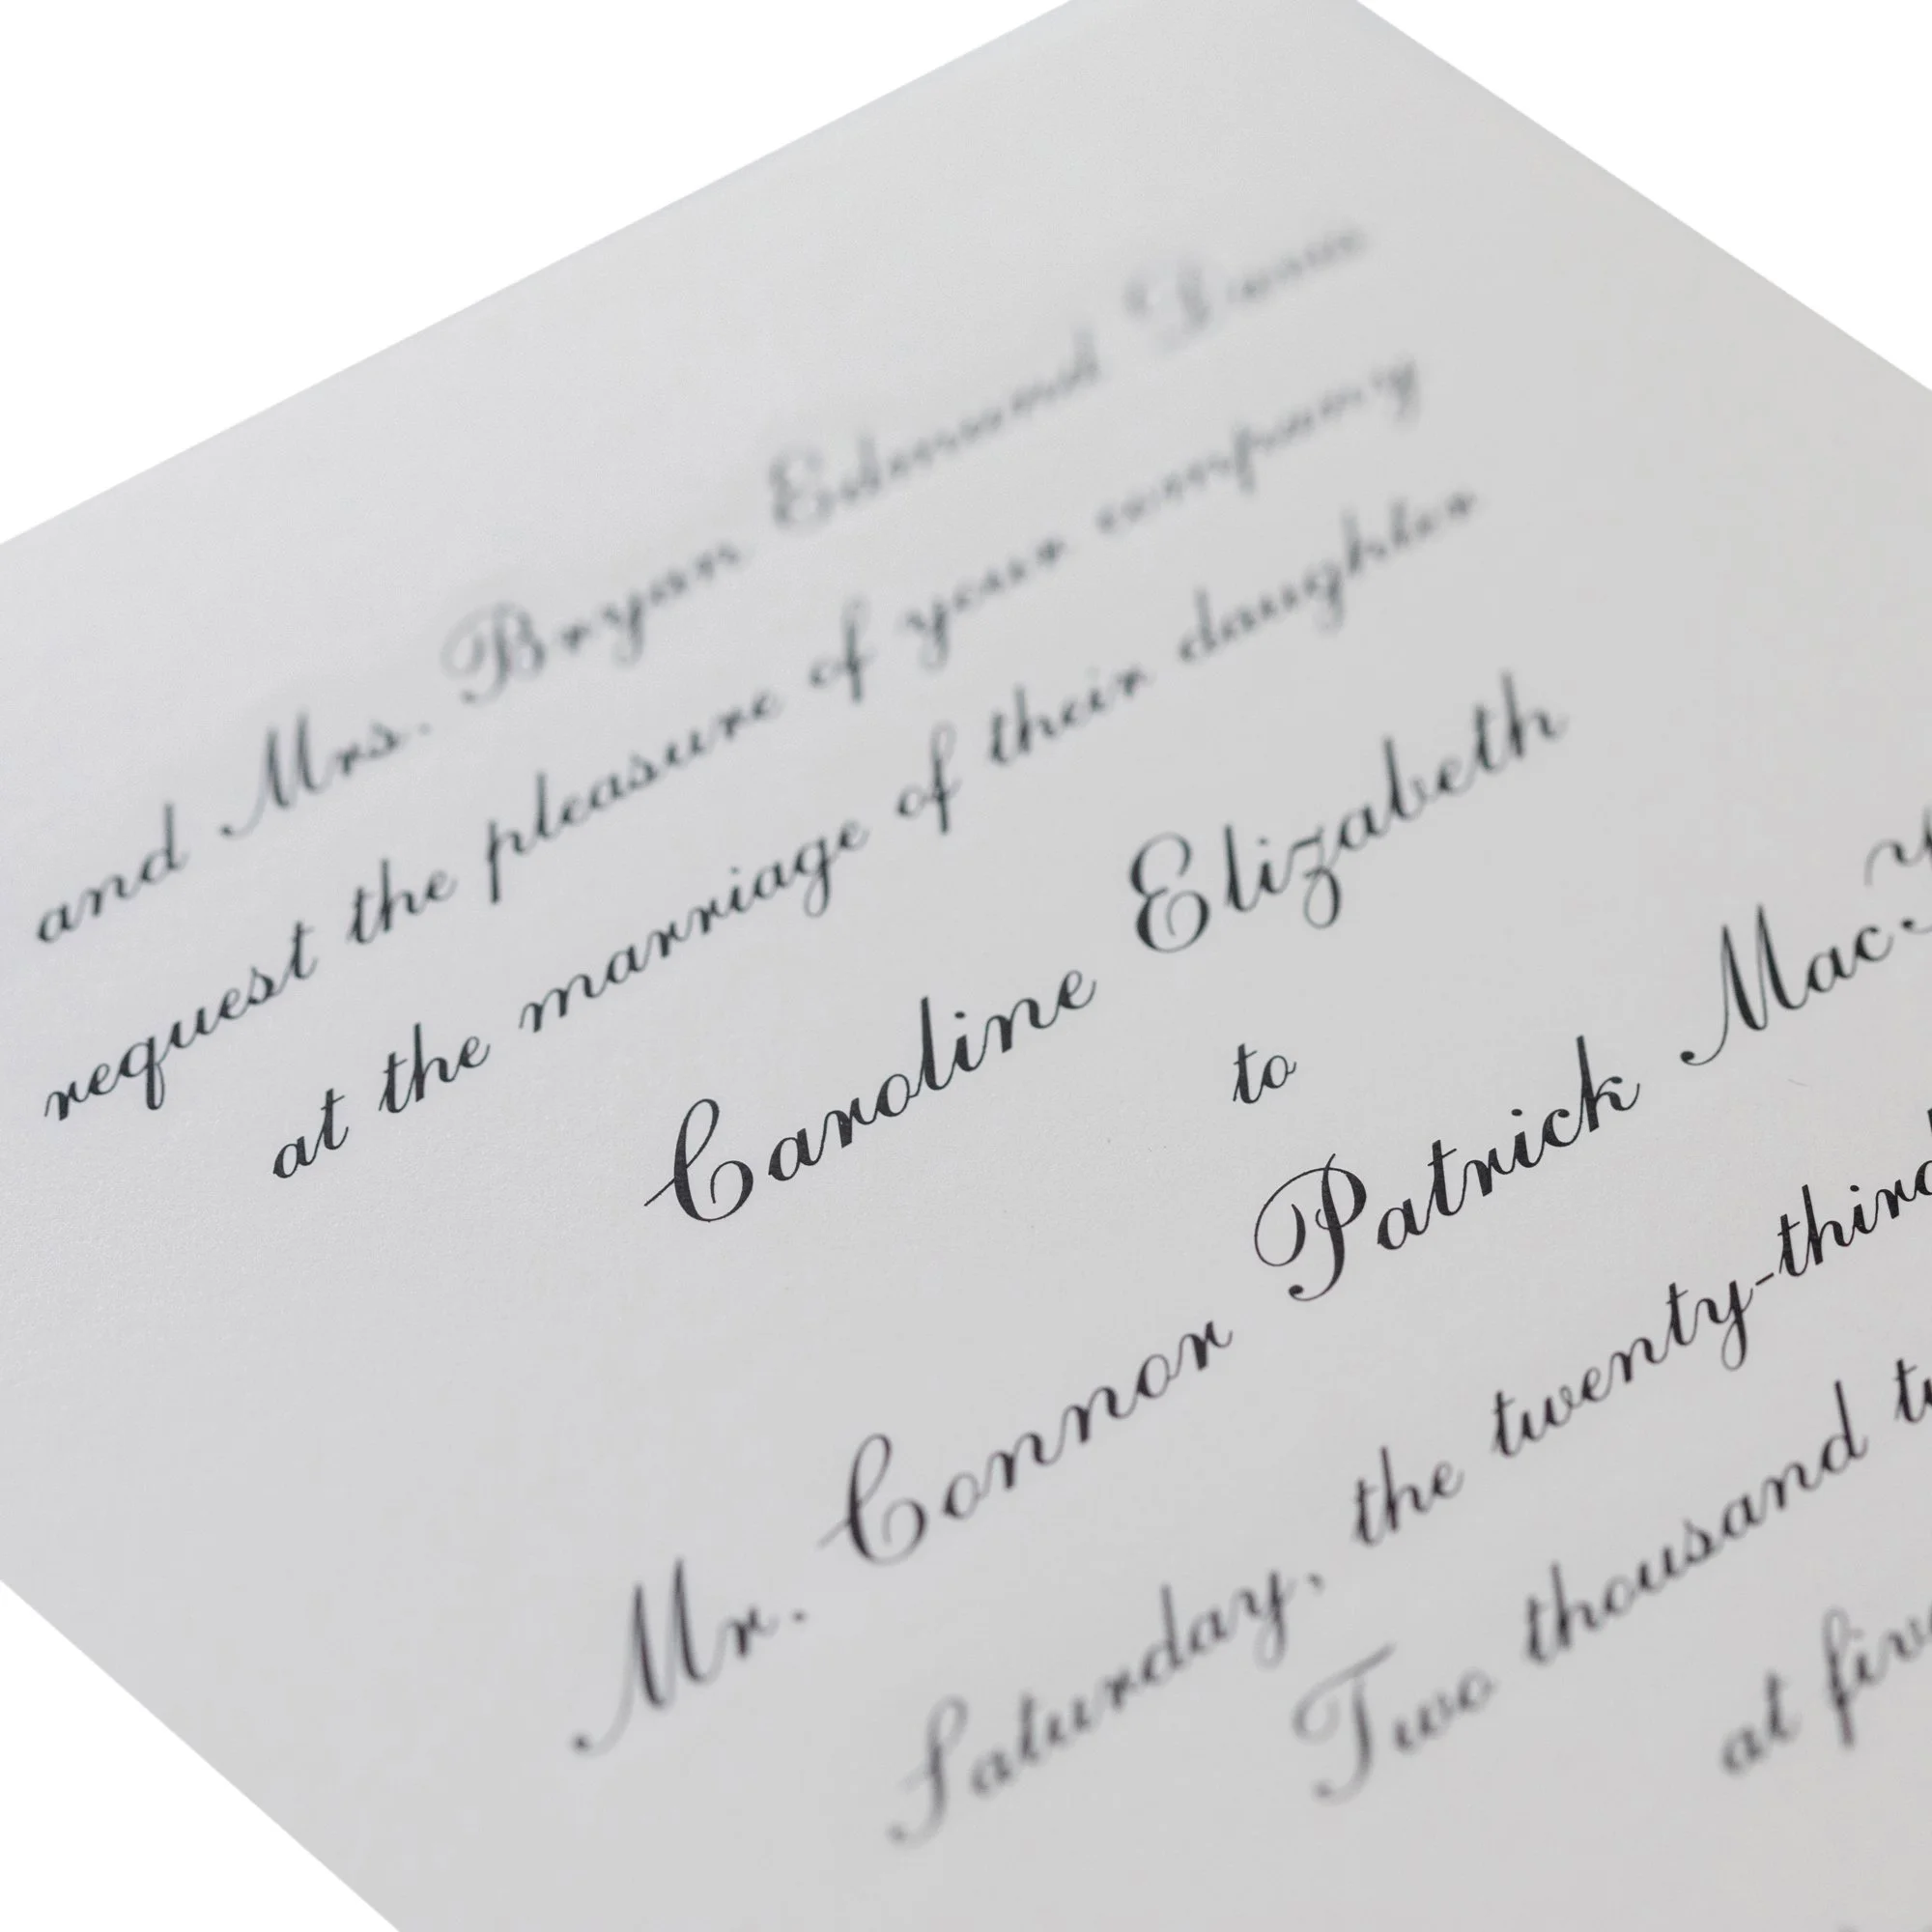 and Mrs. Bryan Edmund
request the pleasure of your company
at the marriage of their daughter
Caroline Elizabeth
to
Mr. Connor Patrick
Saturday, the twenty-third
Two thousand
at